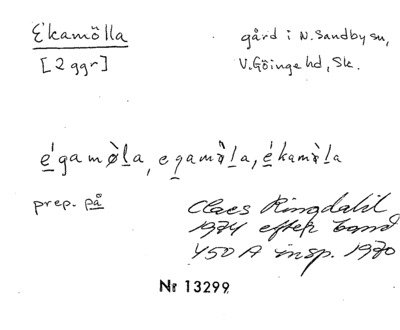 Ekamölla
gård i N. Sandby sn,
[2 ggr]
V. Göinge hd, Sk.
égamø̀la, egamø̀la, ékamø̀la
prep. på
Claes Ringdahl
1974 efter band
450 A insp. 1970
Nr 13299